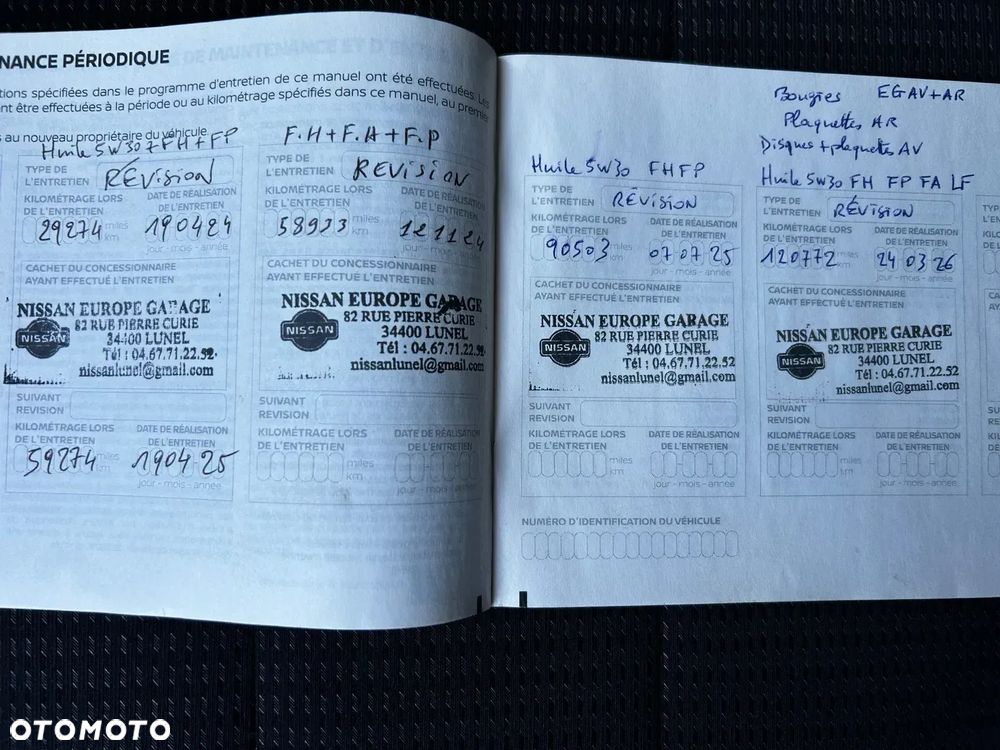 NANCE PÉRIODIQUE
tions spécifiées dans le programme d'entretien de ce manuel ont été effectuées. Les
nt être effectuées à la période ou au kilométrage spécifiés dans ce manuel, au premier
s au nouveau propriétaire du véhicule.
Huile 5W30 + FH + FP
TYPE DE
L'ENTRETIEN
RÉVISION
KILOMÉTRAGE LORS
DE L'ENTRETIEN
DATE DE RÉALISATION
DE L'ENTRETIEN
29274
miles
km
190424
jour - mois - année
CACHET DU CONCESSIONNAIRE
AYANT EFFECTUÉ L'ENTRETIEN
NISSAN EUROPE GARAGE
82 RUE PIERRE CURIE
34400 LUNEL
Tél : 04.67.71.22.52
nissanlunel@gmail.com
NISSAN
SUIVANT
REVISION
KILOMÉTRAGE LORS
DE L'ENTRETIEN
DATE DE RÉALISATION
DE L'ENTRETIEN
59274
miles
km
190425
jour - mois - année
F.H + F.A + F.P
TYPE DE
L'ENTRETIEN
REVISION
KILOMÉTRAGE LORS
DE L'ENTRETIEN
DATE DE RÉALISATION
DE L'ENTRETIEN
58933
miles
km
121124
jour - mois - année
CACHET DU CONCESSIONNAIRE
AYANT EFFECTUÉ L'ENTRETIEN
NISSAN EUROPE GARAGE
82 RUE PIERRE CURIE
34400 LUNEL
Tél : 04.67.71.22.52
nissanlunel@gmail.com
NISSAN
SUIVANT
REVISION
KILOMÉTRAGE LORS
DE L'ENTRETIEN
DATE DE RÉALISATION
DE L'ENTRETIEN
miles
km
jour - mois - année
Huile 5W30 FH FP
TYPE DE
L'ENTRETIEN
RÉVISION
KILOMÉTRAGE LORS
DE L'ENTRETIEN
DATE DE RÉALISATION
DE L'ENTRETIEN
90503
miles
km
07 07 25
jour - mois - année
CACHET DU CONCESSIONNAIRE
AYANT EFFECTUÉ L'ENTRETIEN
NISSAN EUROPE GARAGE
82 RUE PIERRE CURIE
34400 LUNEL
Tél : 04.67.71.22.52
nissanlunel@gmail.com
NISSAN
SUIVANT
REVISION
KILOMÉTRAGE LORS
DE L'ENTRETIEN
DATE DE RÉALISATION
DE L'ENTRETIEN
miles
km
jour - mois - année
NUMÉRO D'IDENTIFICATION DU VÉHICULE
Bougies EGAV + AR
Plaquettes AR
Disques + plaquettes AV
Huile 5W30 FH FP FA LF
TYPE DE
L'ENTRETIEN
RÉVISION
KILOMÉTRAGE LORS
DE L'ENTRETIEN
DATE DE RÉALISATION
DE L'ENTRETIEN
120772
miles
km
24 03 26
jour - mois - année
CACHET DU CONCESSIONNAIRE
AYANT EFFECTUÉ L'ENTRETIEN
NISSAN EUROPE GARAGE
82 RUE PIERRE CURIE
34400 LUNEL
Tél : 04.67.71.22.52
nissanlunel@gmail.com
NISSAN
SUIVANT
REVISION
KILOMÉTRAGE LORS
DE L'ENTRETIEN
DATE DE RÉALISATION
DE L'ENTRETIEN
miles
km
jour - mois - année
OTOMOTO